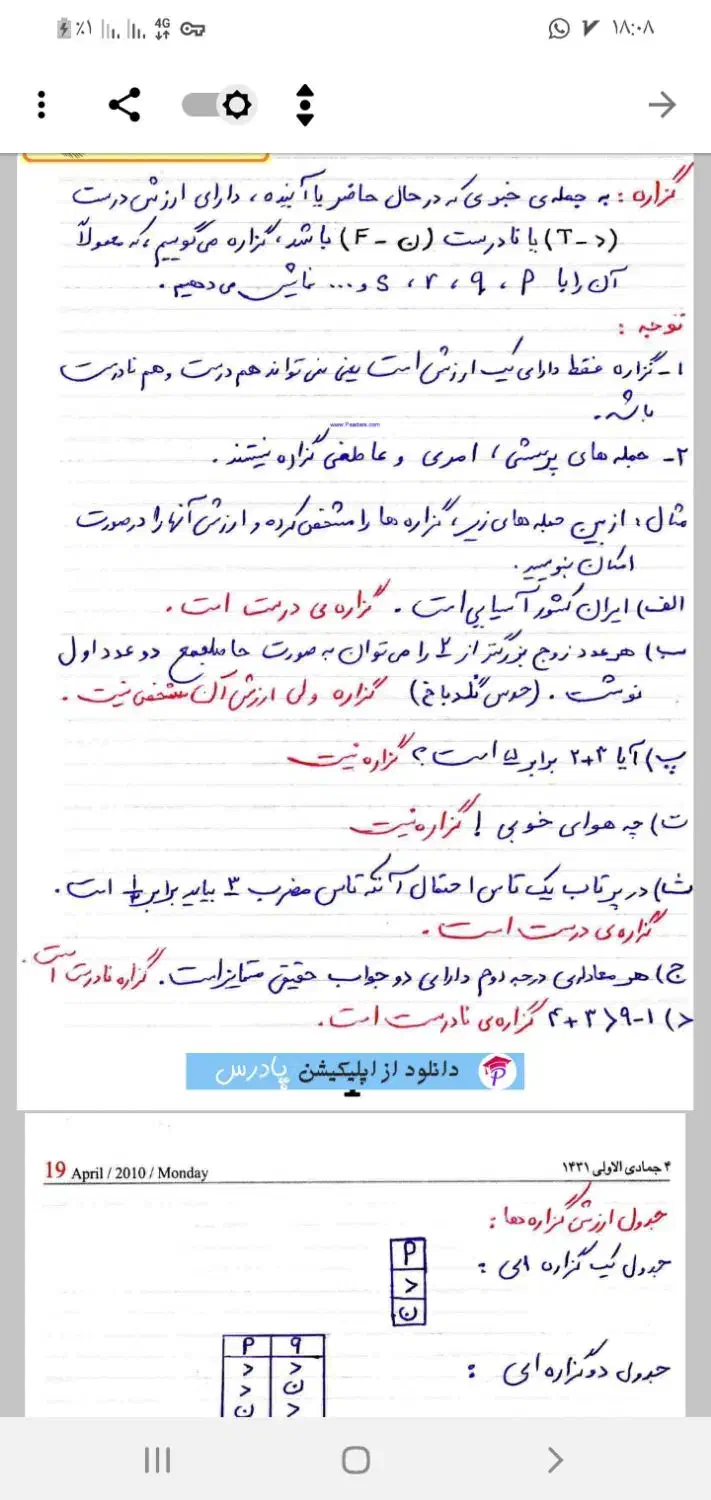 ۱۸:۰۸
4G
٪۱
گزاره : به جمله‌ی خبری که در حال حاضر یا آینده ، دارای ارزش درست
(د - T) یا نادرست (ن - F) باشد ، گزاره می‌گوییم ، که معمولاً
آن را با p ، q ، r ، s و ... نمایش می‌دهیم .
توجه :
۱- گزاره فقط دارای یک ارزش است یعنی نمی‌تواند هم درست و هم نادرست
باشد .
۲- جمله های پرسشی ، امری و عاطفی گزاره نیستند .
مثال : از بین جمله های زیر ، گزاره ها را مشخص کرده و ارزش آنها را در صورت
امکان بنویسید .
الف) ایران کشور آسیایی است . گزاره‌ی درست است .
ب) هر عدد زوج بزرگتر از ۲ را می‌توان به صورت حاصلجمع دو عدد اول
نوشت . (حدس گلدباخ) گزاره ولی ارزش آن مشخص نیست .
پ) آیا ۲+۳ برابر ۵ است ؟ گزاره نیست
ت) چه هوای خوبی ! گزاره نیست
ث) در پرتاب یک تاس احتمال آنکه تاس مضرب ۳ بیاید برابر ۱/۳ است .
گزاره‌ی درست است .
ج) هر معادله‌ی درجه دوم دارای دو جواب حقیقی متمایز است . گزاره نادرست است .
گزاره‌ی نادرست است .
دانلود از اپلیکیشن پادرس
19 April / 2010 / Monday
۴ جمادی الاولی ۱۴۳۱
جدول ارزش گزاره ها :
جدول یک گزاره ای :
p
د
ن
جدول دو گزاره ای :
p q
د د
د ن
ن د